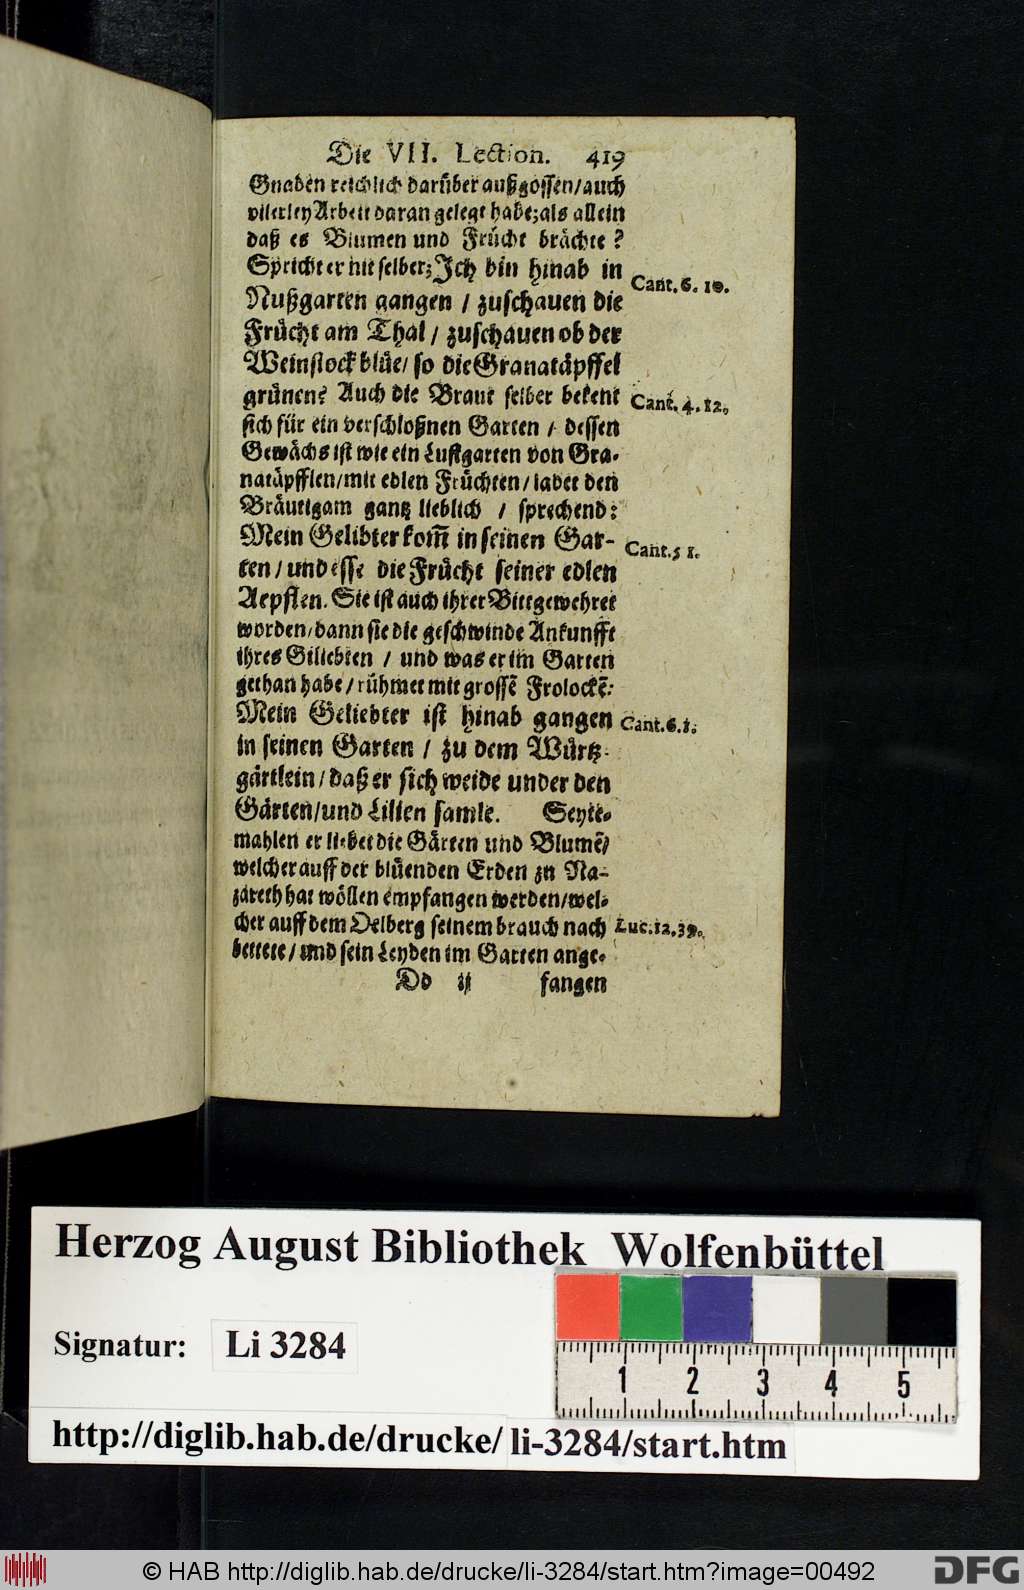 Die VII. Lection. 419
Gnaden reichlich darüber außgossen/auch
vilerley Arbeit daran gelegt habe; als allein
daß es Blumen und Frücht brächte?
Spricht er nit selber; Ich bin hinab in
Cant. 6. 10.
Nußgarten gangen / zuschauen die
Frücht am Thal / zuschauen ob der
Weinstock blüe/ so die Granatäpffel
grünen? Auch die Braut selber bekent
Cant. 4. 12.
sich für ein verschloßnen Garten / dessen
Gewächs ist wie ein Lustgarten von Gra-
natäpfflen/mit edlen Früchten / ladet den
Bräutigam gantz lieblich / sprechend:
Mein Gelibter kom̃ in seinen Gar-
Cant. 5 1.
ten / und esse die Frücht seiner edlen
Aepflen. Sie ist auch ihrer Bitt gewehret
worden/dann sie die geschwinde Ankunfft
ihres Giliebten / und was er im Garten
gethan habe / rühmet mit grossẽ Frolockẽ:
Mein Geliebter ist hinab gangen
Cant. 6. 1.
in seinen Garten / zu dem Würtz-
gärtlein / daß er sich weide under den
Gärten/und Lilien samle. Seyte-
mahlen er liebet die Gärten und Blumẽ/
welcher auff der blüenden Erden zu Na-
zareth hat wöllen empfangen werden/wel-
cher auff dem Oelberg seinem brauch nach
Luc. 12. 39.
bettete / und sein Leyden im Garten ange-
Dd ij fangen
Herzog August Bibliothek Wolfenbüttel
Signatur: Li 3284
1 2 3 4 5
http://diglib.hab.de/drucke/ li-3284/start.htm
© HAB http://diglib.hab.de/drucke/li-3284/start.htm?image=00492
DFG